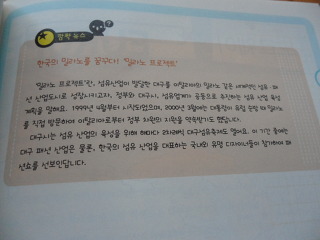 깜짝 뉴스
한국의 밀라노를 꿈꾸다! '밀라노 프로젝트'
'밀라노 프로젝트'란, 섬유산업이 발달한 대구를 이탈리아의 밀라노 같은 세계적인 섬유·패
션 산업도시로 성장시키고자, 정부와 대구시, 섬유업계가 공동으로 추진하는 섬유 산업 육성
계획을 말해요. 1999년 9월부터 시작되었으며, 2000년 3월에는 대통령이 유럽 순방 때 밀라노
를 직접 방문하여 이탈리아로부터 정부 차원의 지원을 약속받기도 했답니다.
대구시는 섬유 산업의 육성을 위해 해마다 2차례씩 대구섬유축제도 열어요. 이 기간 중에는
대구 패션 산업은 물론, 한국의 섬유 산업을 대표하는 국내외 유명 디자이너들이 참가하여 패
션쇼를 선보인답니다.